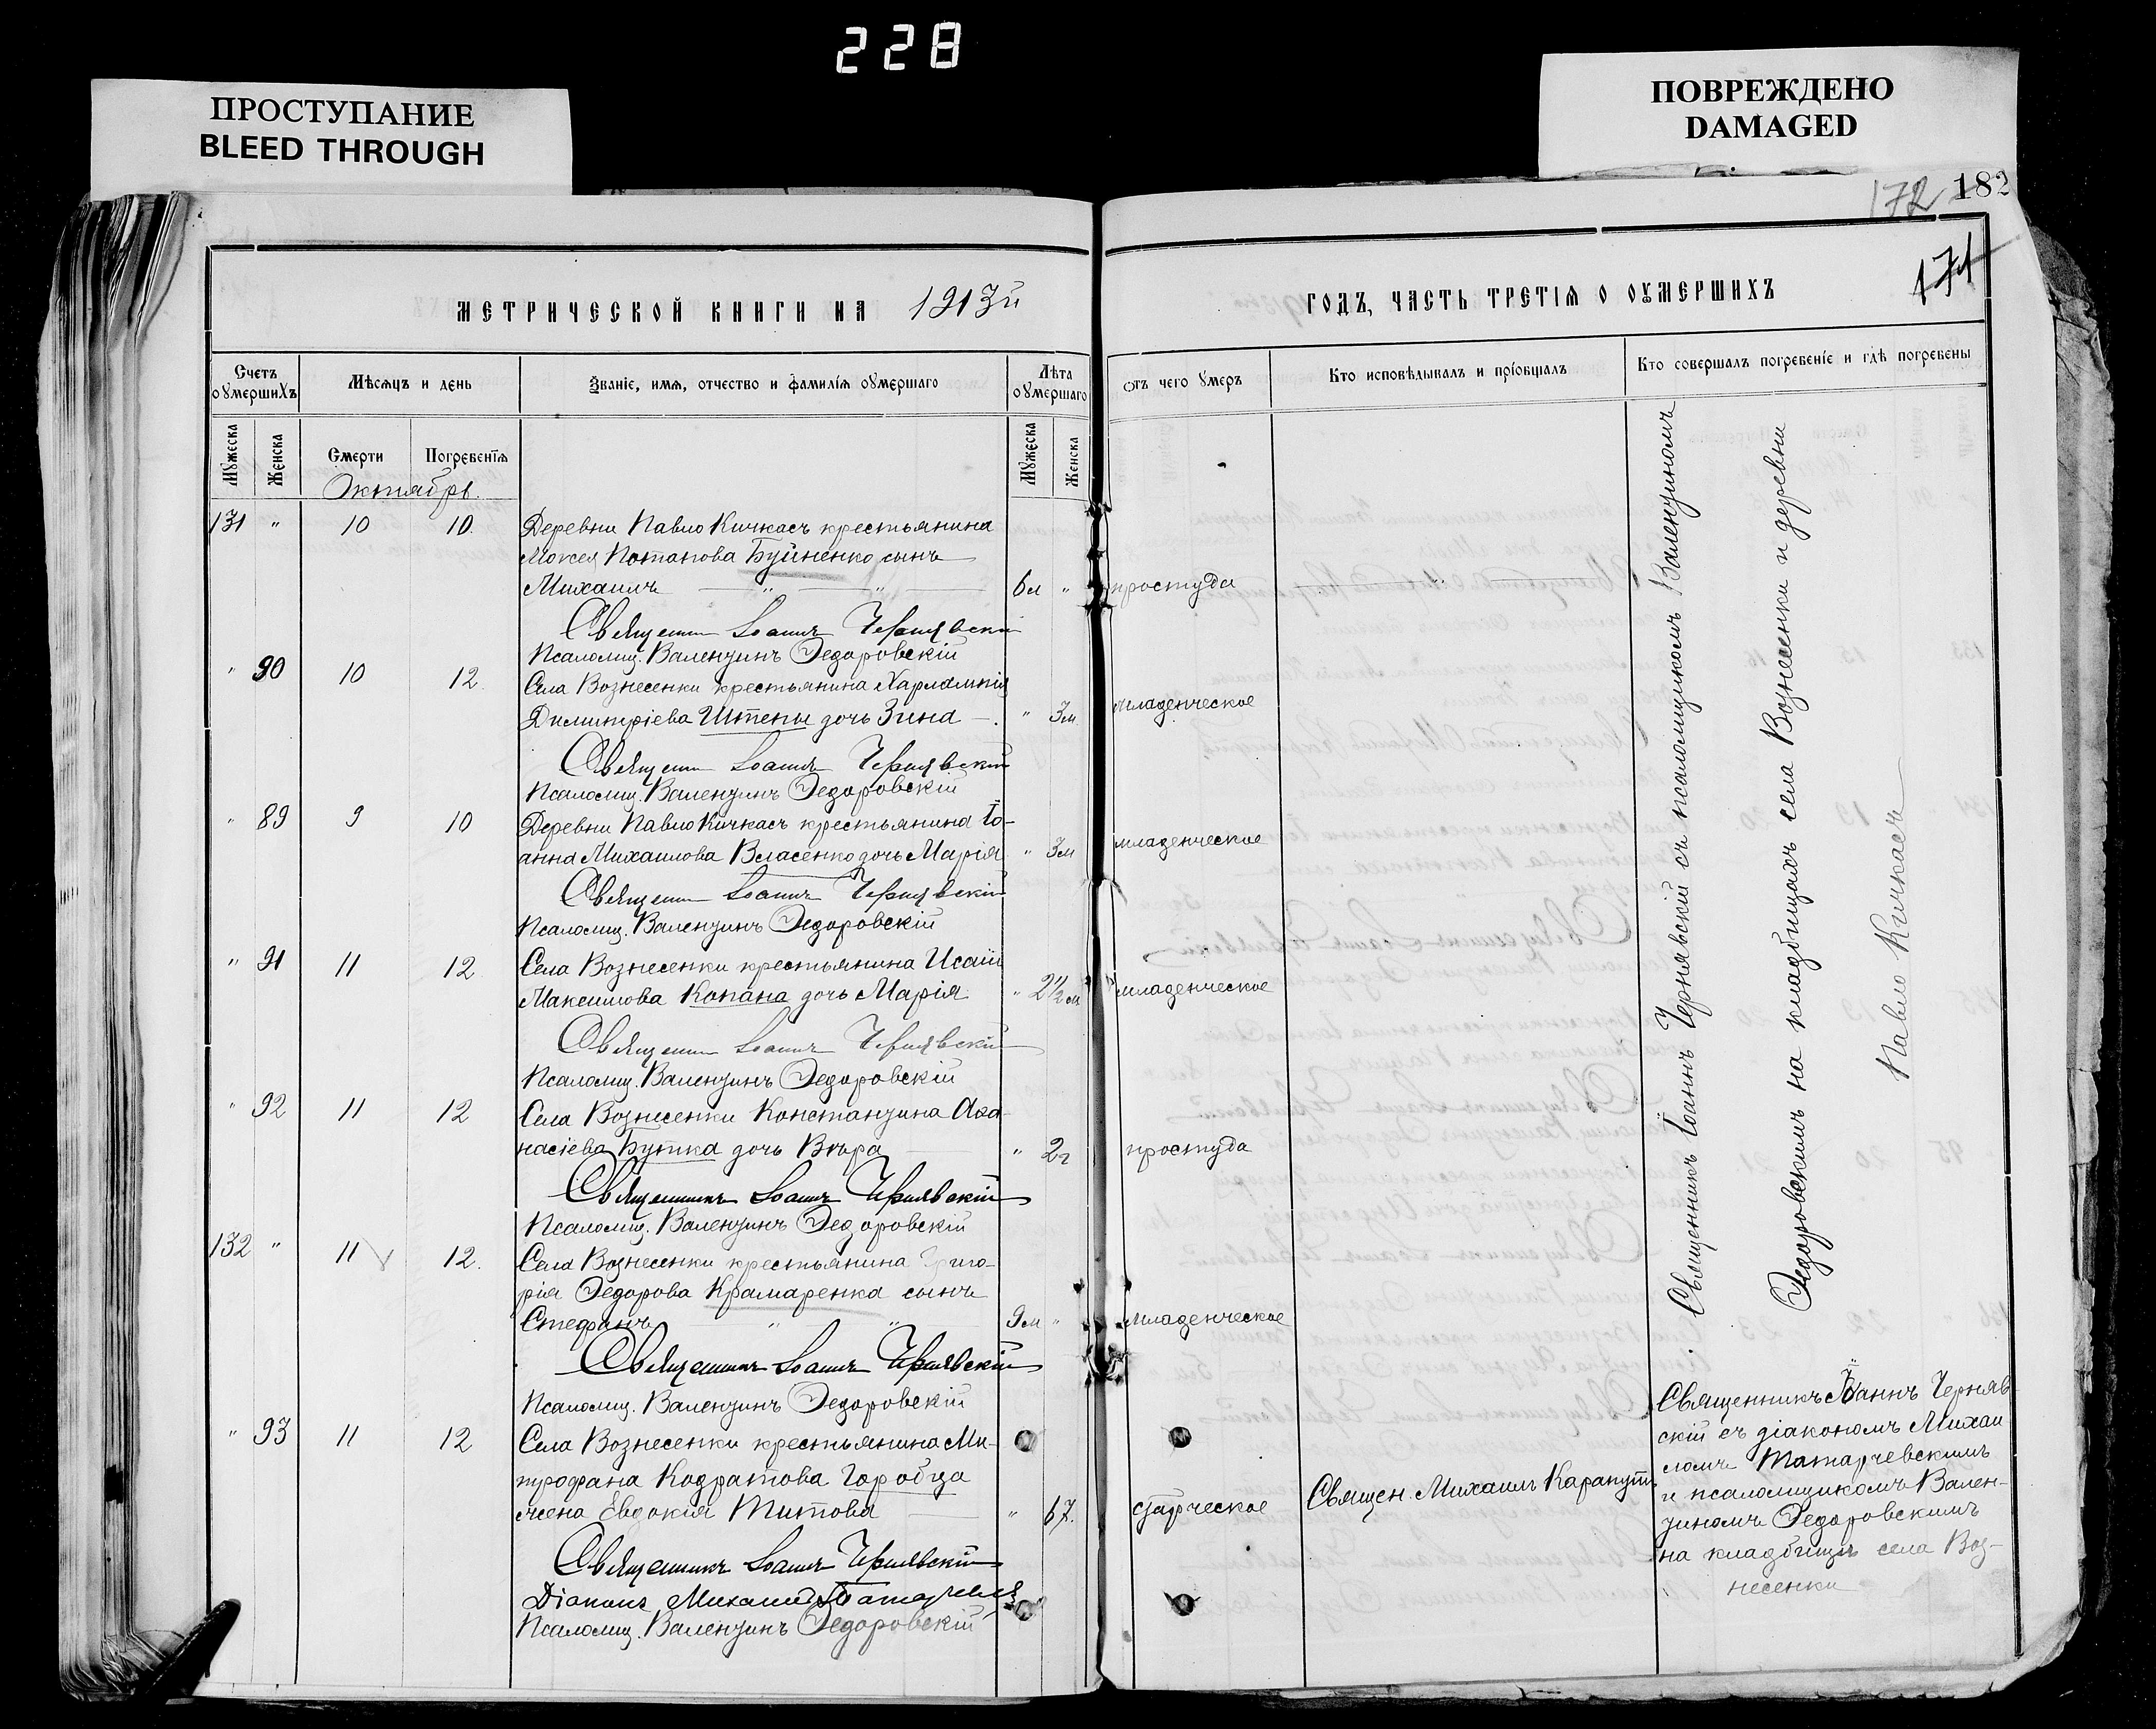 228
ПРОСТУПАНИЕ
BLEED THROUGH
ПОВРЕЖДЕНО
DAMAGED
172 182
171
МЕТРИЧЕСКОЙ КНИГИ НА 1913й
ГОДЪ, ЧАСТЬ ТРЕТІЯ О ОУМЕРШИХЪ
Счетъ оумершихъ
Мѣсяцъ и день
Званіе, имя, отчество и фамилія оумершаго
Лѣта оумершаго
отъ чего умеръ
Кто исповѣдывалъ и пріобщалъ
Кто совершалъ погребеніе и гдѣ погребены
Мужеска
Женска
Смерти
Погребенія
Мужеска
Женска
Октябрь.
131 " 10 10. Деревни Павло Кичкасъ крестьянина
Мокея Потапова Буйненко сынъ
Михаилъ " " 6м " простуда
Священни Іоаннъ Чернявскій
Псаломщ. Валентинъ Федоровскій
" 90 10 12. Села Вознесенки крестьянина Харлампія
Димитріева Штепы дочь Зина " 3м. младенческое
Священни Іоаннъ Чернявскій
Псаломщ. Валентинъ Федоровскій
" 89 9 10 Деревни Павло Кичкасъ крестьянина Іо-
анна Михаилова Власенко дочь Марія " 3м младенческое
Священни Іоаннъ Чернявскій
Псаломщ. Валентинъ Федоровскій
" 91 11 12 Села Вознесенки крестьянина Исаіи
Максимова Копана дочь Марія " 2 1/2 м младенческое
Священни Іоаннъ Чернявскій
Псаломщ. Валентинъ Федоровскій
" 92 11 12 Села Вознесенки Константина Аѳа-
насіева Бутка дочь Вѣра " 2г простуда
Священникъ Іоаннъ Чернявскій
Псаломщ. Валентинъ Федоровскій
132 " 11 12. Села Вознесенки крестьянина Григо-
рія Федорова Крамаренка сынъ
Стефанъ " " 9м " младенческое
Священникъ Іоаннъ Чернявскій
Псаломщ. Валентинъ Федоровскій
" 93 11 12 Села Вознесенки крестьянина Ми-
трофана Кодратова Горобца
жена Евдокія Титова " 67. старческое Священ. Михаилъ Карапутъ
Священникъ Іоаннъ Чернявскій
Діаконъ Михаилъ
Псаломщ. Валентинъ Федоровскій
Священникъ Іоаннъ Чернявскій съ псаломщикомъ Валентиномъ
Федоровскимъ на кладбищахъ села Вознесенки и деревни
Павло Кичкасъ
Священникъ Іоаннъ Черняв-
скій съ діакономъ Михаи
ломъ Татарчевскимъ
и псаломщикомъ Вален-
тиномъ Федоровскимъ
на кладбищѣ села Воз-
несенки